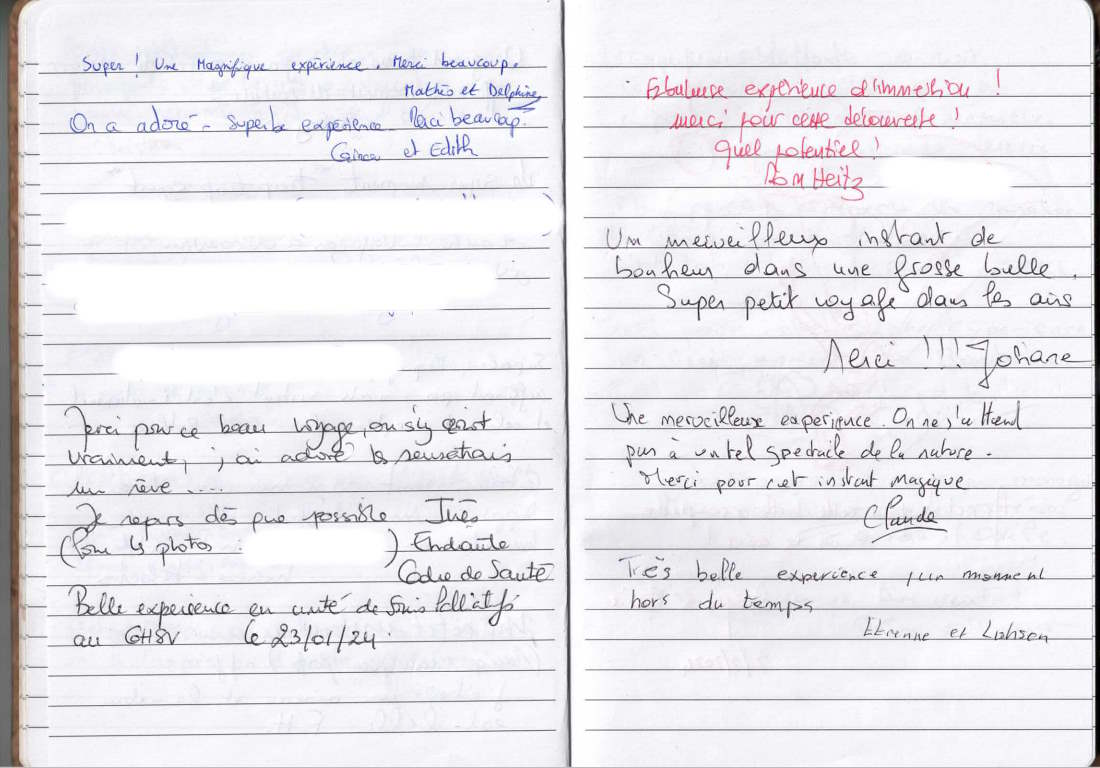 Super ! Une Magnifique expérience. Merci beaucoup.
Mathis et Delphine
On a adoré - Superbe expérience - Merci beaucoup.
et Edith
Merci pour ce beau voyage, on s'y croit
vraiment, j'ai adoré les sensations
un rêve ....
Je repars dès que possible Inès
(Pour les photos : ) Etudiante
Cadre de Santé
Belle expérience en unité de Soins Palliatifs
au GHSV le 23/01/24.
Fabuleuse expérience d'immersion !
merci pour cette découverte !
Quel potentiel !
Rom Heitz
Un merveilleux instant de
bonheur dans une grosse bulle.
Super petit voyage dans les airs
Merci !!! Johane
Une merveilleuse experience. On ne s'attend
pas à un tel spectacle de la nature.
Merci pour cet instant magique
Claude
Très belle experience, un moment
hors du temps
Etienne et